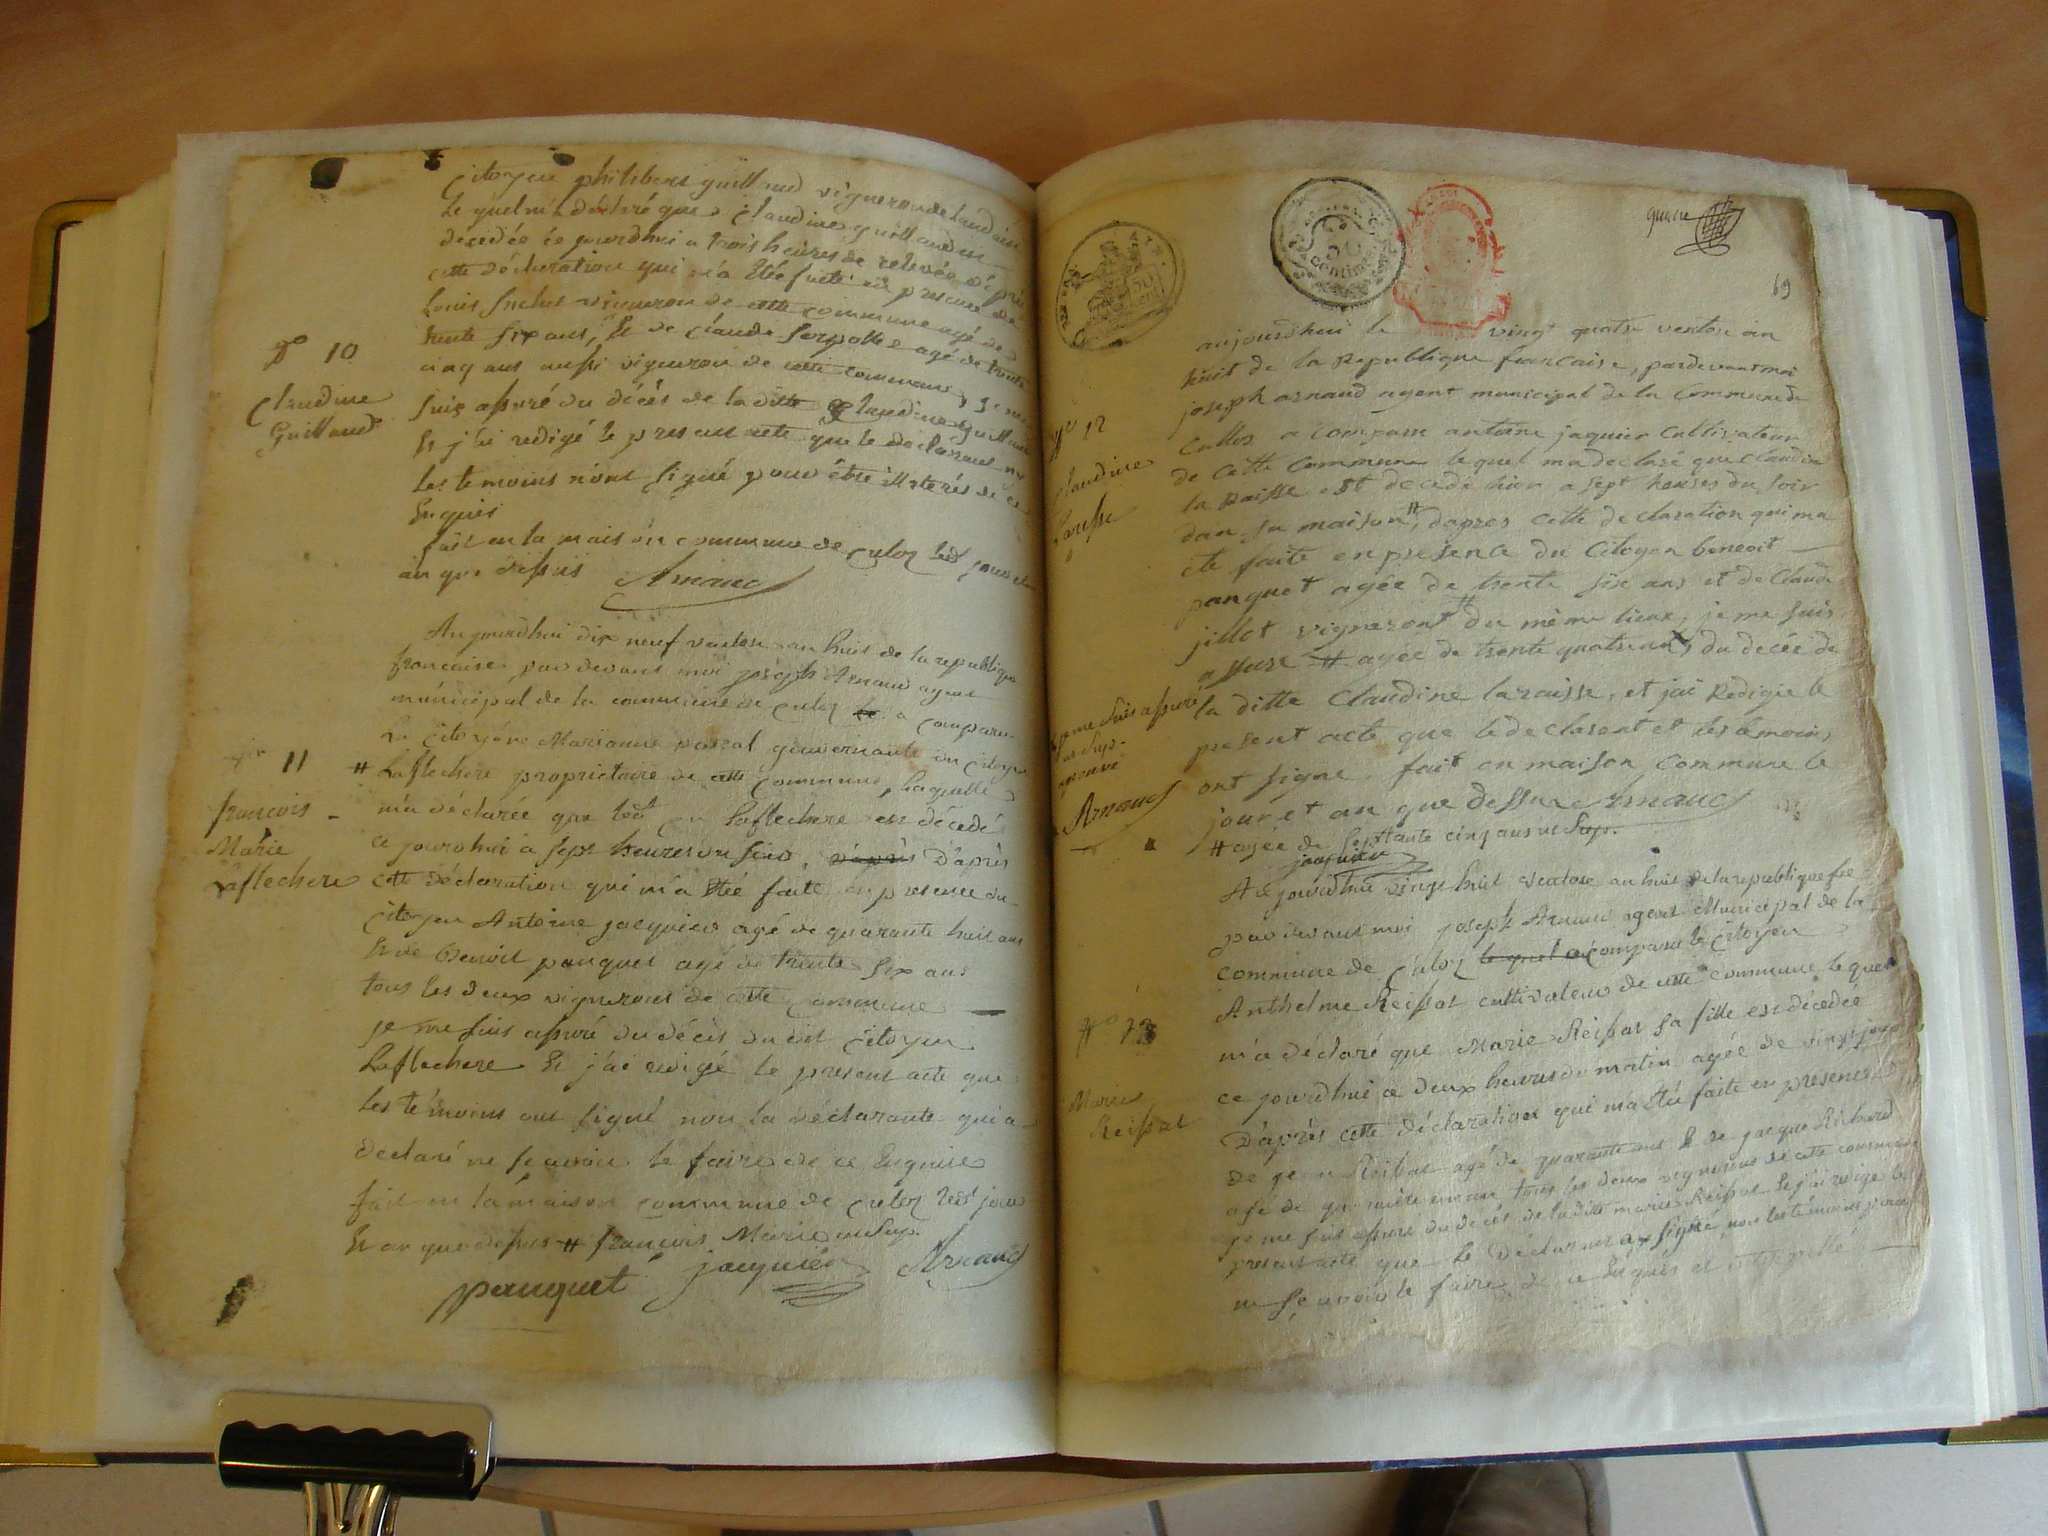 Citoyen philibert guillaud vigneron de
Le quel m'a déclaré que Claudine guillaud
décédée ce jourdhui a trois heures de relevée D'après
cette déclaration qui m'a étée faite en presence de
Louis vigneron de cette commune agé de
trente six ans, Et de Claude Serpolle agé de trente
cinq ans aussi vigneron de cette commune, je me
suis assuré du décès de la ditte Claudine guillaud
Et j'ai redigé le present acte que le declarant
Les temoins n'ont signé pour être illiterés de ce
Enquis
fait en la maison commune de Culoz led jour et
an que dessus Arnaud
No 10
Claudine
Guillaud
Aujourdhui dix neuf ventose an huit de la republique
francaise par devant moi joseph Arnaud agent
municipal de la commune de Culoz a comparu
La Citoyene Marianne pascal gouvernante du Citoyen
# Laflechere proprietaire de cette commune, Laquelle
m'a déclarée que led Cn Laflechere est décedé
ce jourdhui à sept heures du soir, d'après D'après
cette déclaration qui m'a étée faite en presence du
Citoyen Antoine jacquier agé de quarante huit ans
Et de Benoit panquet agé de trente six ans
tous les deux vignerons de cette commune
je me suis assuré du décès du dit Citoyen
Laflechere Et j'ai redigé le present acte que
Les témoins ont signé non la déclarante qui a
declaré ne scavoir le faire de ce Enquise
fait en la maison commune de Culoz led jour
Et an que dessus # francois Marie
panquet jacquier Arnaud
11
francois
Marie
Laflechere
69
50
centimes
aujourdhui le vingt quatre ventose an
huit de la Republique francaise, pardevant moi
joseph arnaud agent municipal de la Commune de
Culloz a comparu antoine jaquier Cultivateur
de Cette Commune lequel ma declaré que Claudine
la Raisse est decedé hier a sept heures du soir
dan sa maison #, dapres cette declaration qui ma
ete faite en presence du Citoyen benoit
panquet agée de trente six ans et de Claude
jillot vigneront du même lieux, je me suis
assuré # agée de trente quatre ans du decée de
la ditte Claudine laraisse, et jai Redigie le
present acte que le declarent et les temoins
ont signe. fait en maison Commune le
jour et an que dessure Arnaud
# agée de septtante cinq ans
jacquier
12
Claudine
Laraisse
je me suis assuré
Arnaud
Ce jourdhui vingt huit ventose an huit de la republique
par devant moi joseph Arnaud agent Municipal de la
commune de Culoz le quel a comparu le Citoyen
Anthelme Reissat cultivateur de cette commune le quel
m'a déclaré que Marie Reissat sa fille est décedée
ce jourdhui a deux heures du matin agée de vingt jours
D'après cette déclaration qui ma étée faite en presence
de Reissat agé de quarante ans Et de jacque Richard
agé de quarante un an, tous les deux vignerons de cette commune
je me suis assuré du décès de la ditte marie Reissat Et j'ai redigé le
present acte que Le Déclarant a signé, non les témoins pour
ne sçavoir le faire de ce Enquis et
No 13
Marie
Reissat